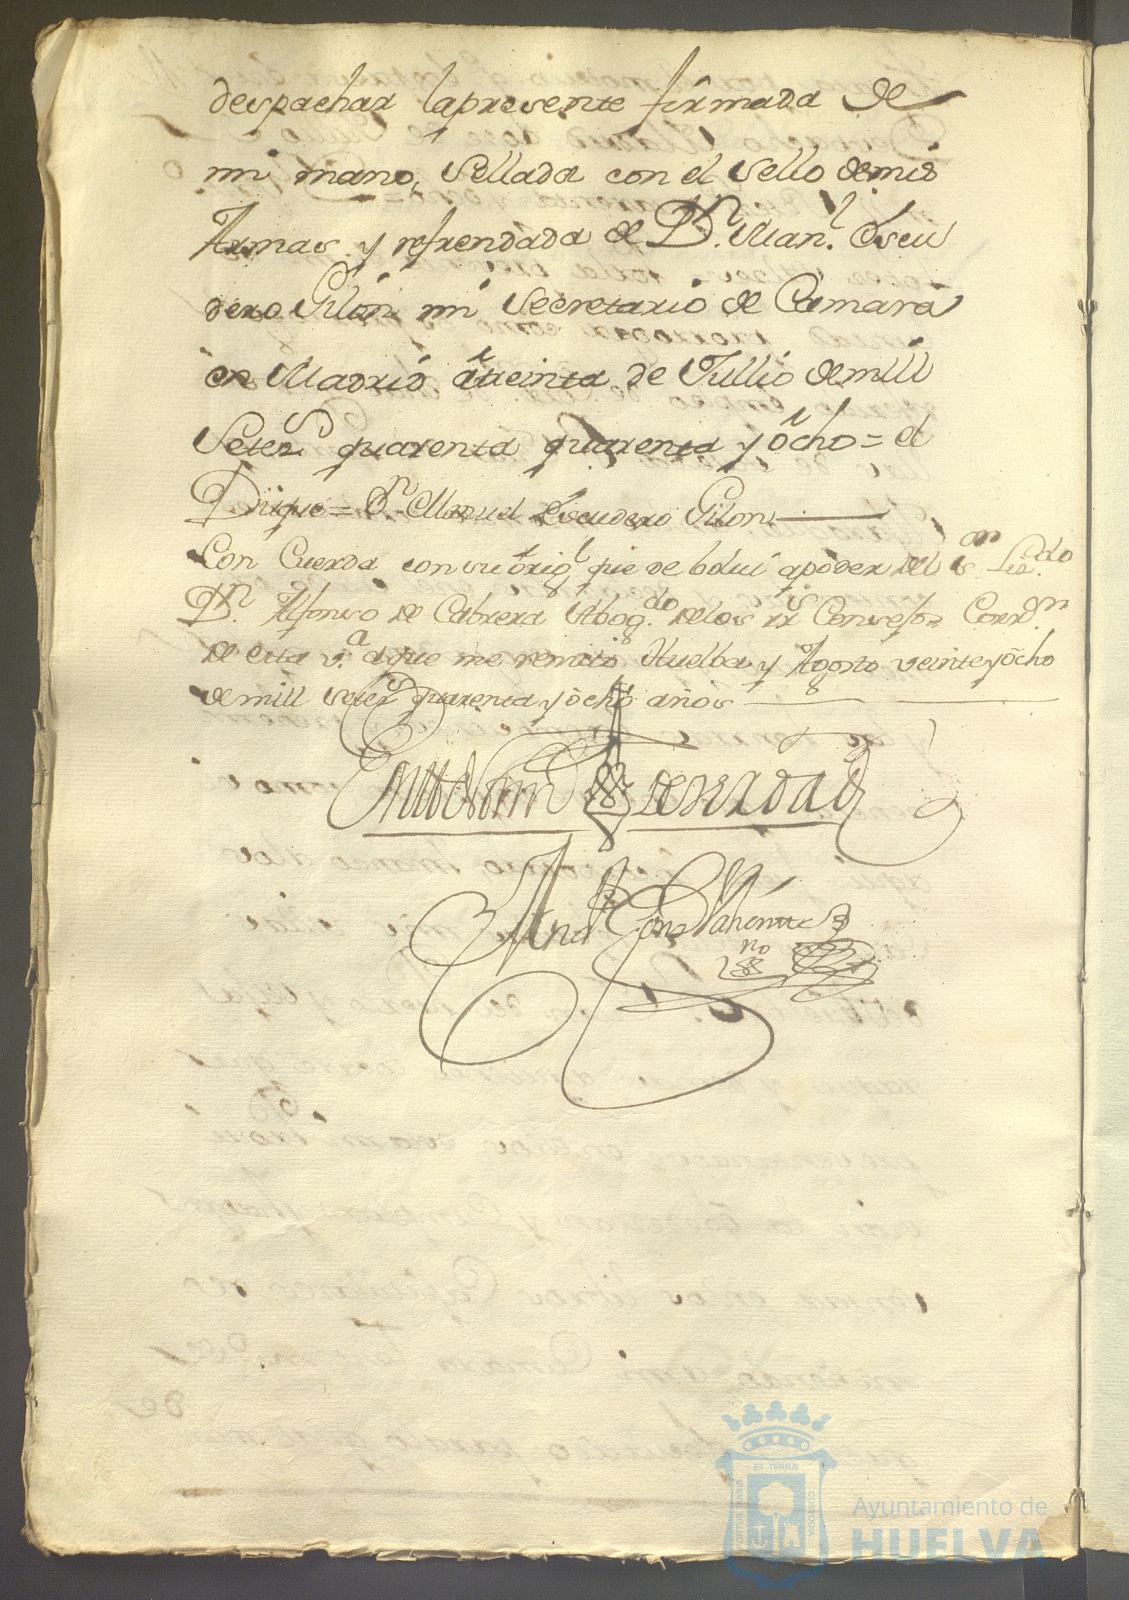 despachar lapresente firmada de
mi mano, sellada con el sello demis
Armas, y refrendada de Dn. Manl. Escu
dero Gilón mi Secretario de Camara
en Madrid â treinta de Jullio demill
Setezs quarenta quarenta y ôcho = el
Duque = Dn Manuel Escudero Gilon
Con Cuerda con su ôrigl que debolui apoder del Sr Lizdo
Dn. Alfonso de Cabrera Abogdo delos Rs Consejos Corrn
de esta va. aque me remito Huelba y Agosto veinte y ôcho
de mill setezs quarenta y ôcho años
En testim de verdad
no
ET TERRAE
Ayuntamiento de
HUELVA